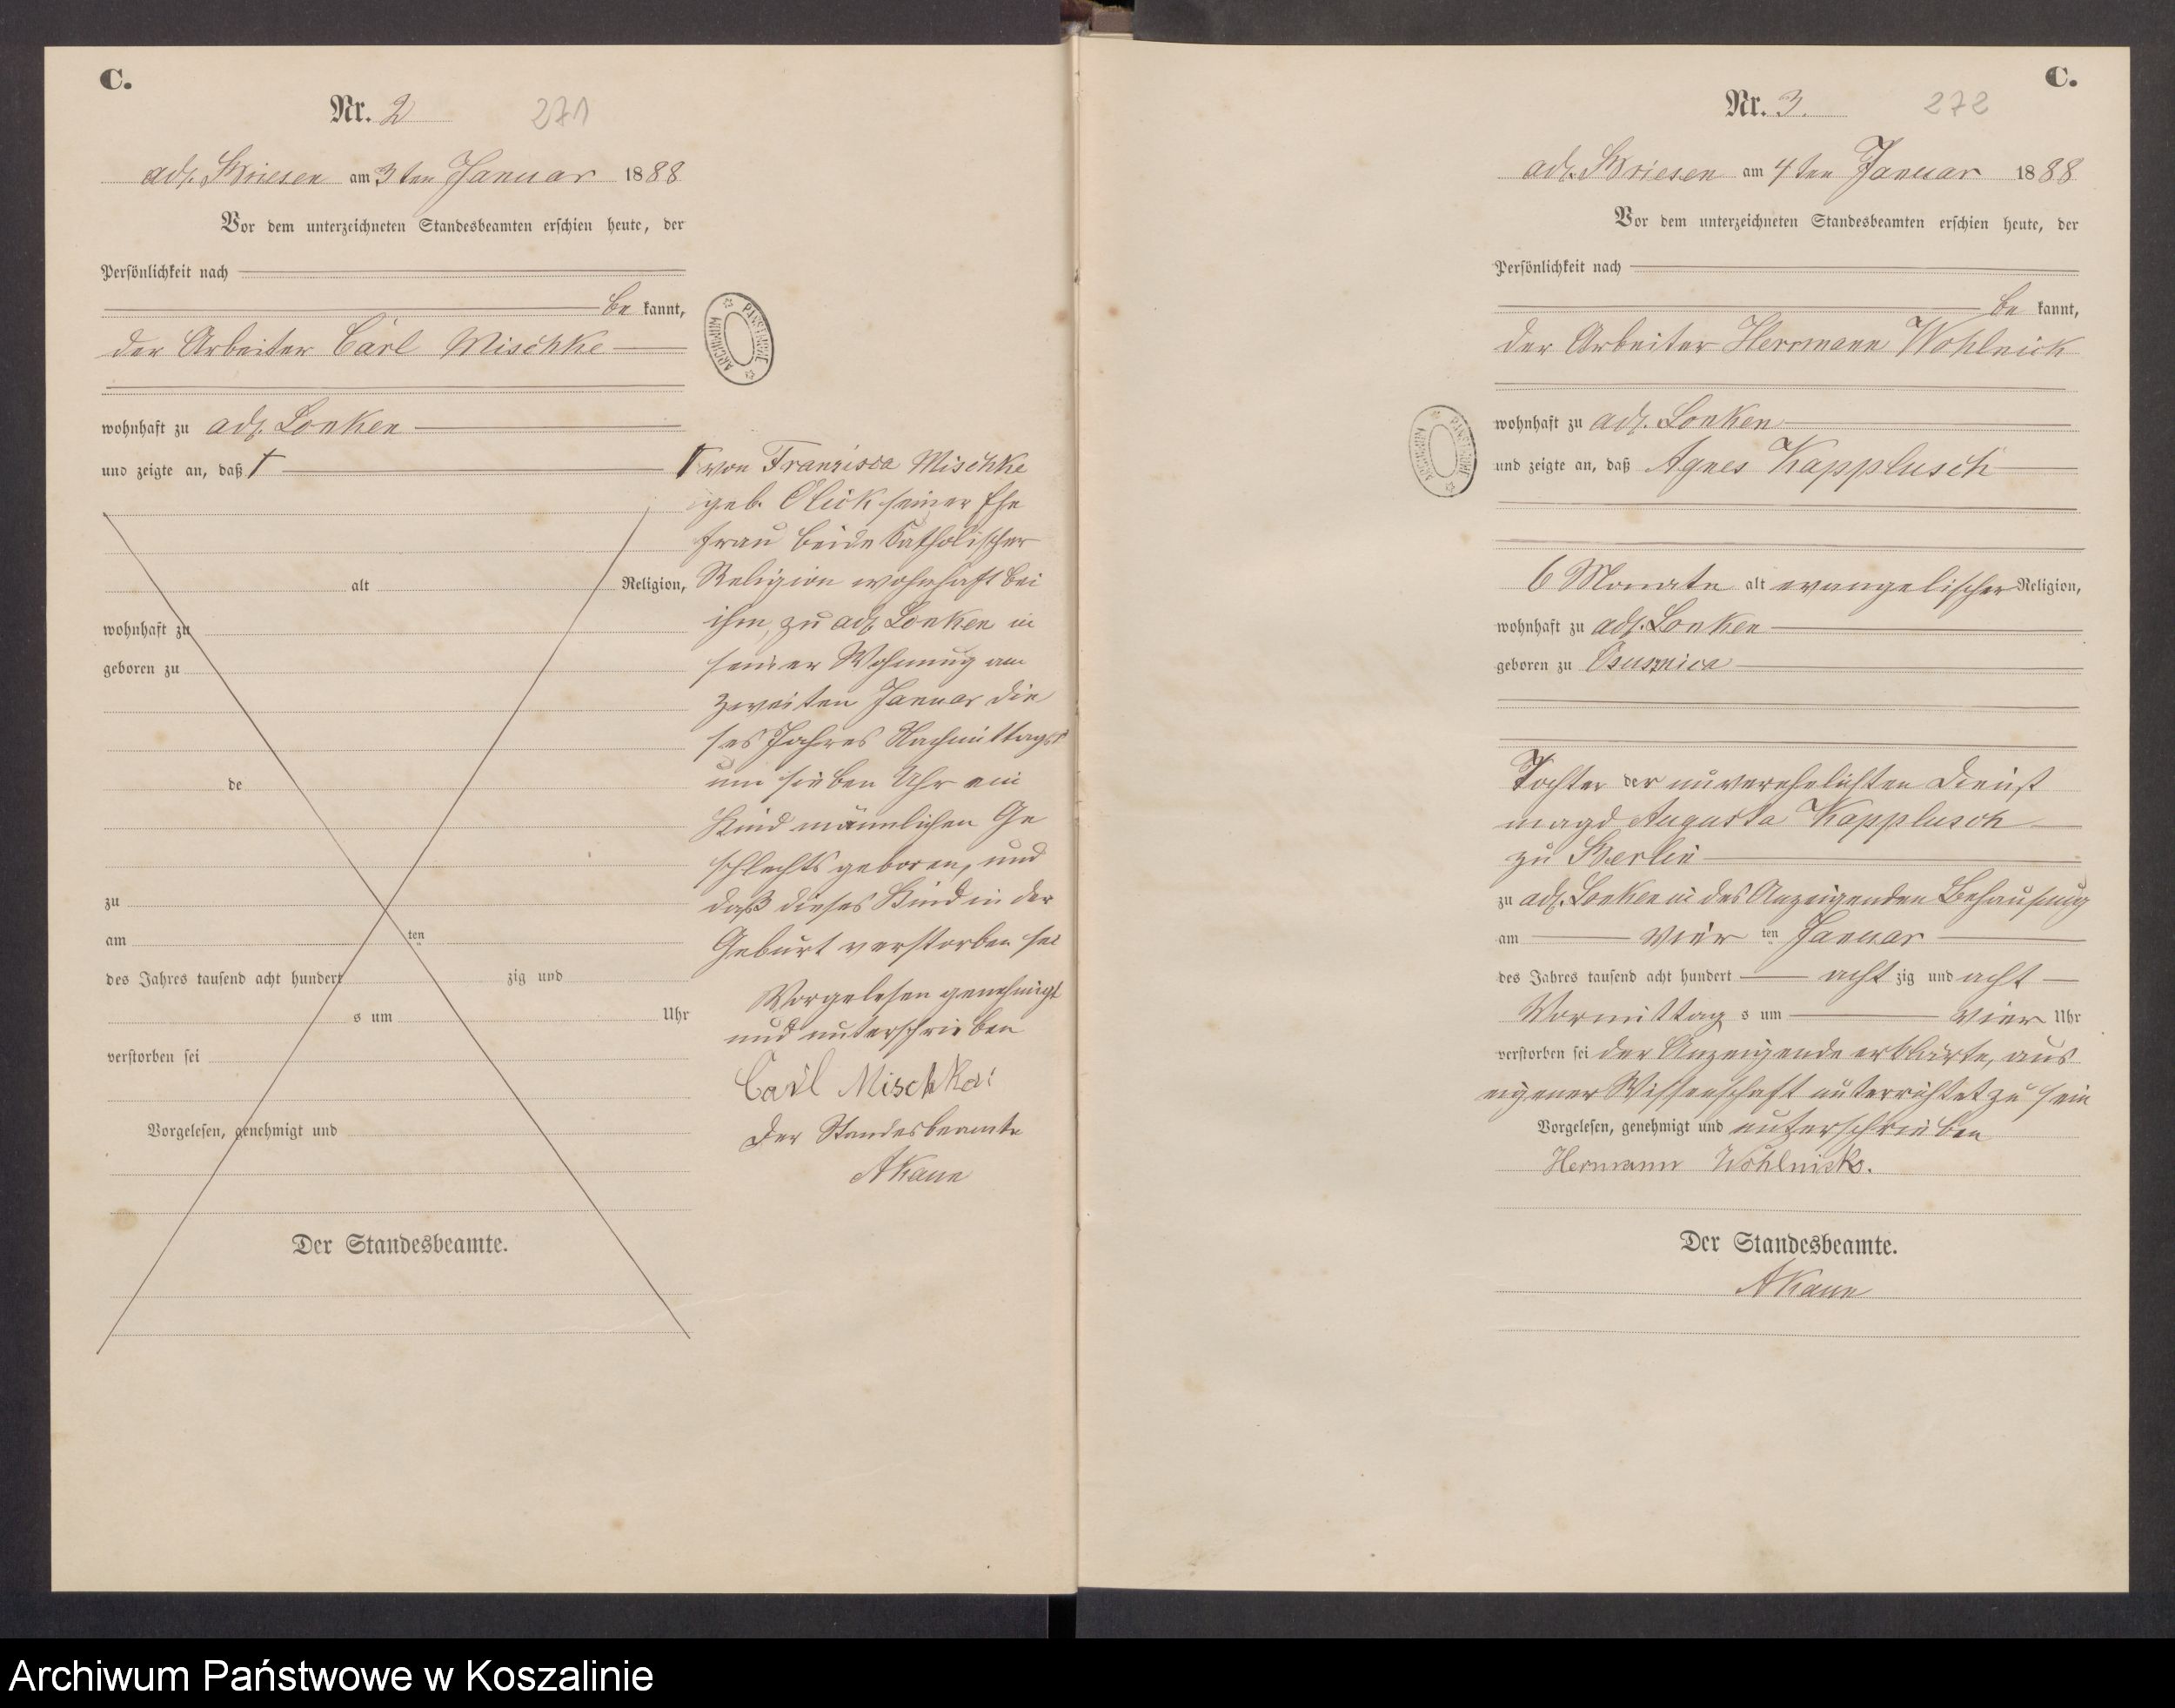 C.
Nr. 2
271
adl. Briesen am 3ten Januar 1888
Vor dem unterzeichneten Standesbeamten erschien heute, der
Persönlichkeit nach
be kannt,
der Arbeiter Carl Mischke
wohnhaft zu adl. Lonken
und zeigte an, daß
alt Religion,
wohnhaft zu
geboren zu
de
zu
am ten
des Jahres tausend acht hundert zig und
s um Uhr
verstorben sei
Vorgelesen, genehmigt und
Der Standesbeamte.
ARCHIWUM PAŃSTWOWE
von Franzisca Mischke
geb. seiner Ehe
frau beide Katholischer
Religion wohnhaft bei
ihm, zu adl. Lonken in
seiner Wohnung am
zweiten Januar die
ses Jahres Nachmittags
um sieben Uhr ein
Kind männlichen Ge
schlechts geboren, und
daß dieses Kind in der
Geburt verstorben sei
Vorgelesen genehmigt
und unterschrieben
Carl Mischke
Der Standesbeamte
C.
Nr. 3.
272
adl. Briesen am 4ten Januar 1888
Vor dem unterzeichneten Standesbeamten erschien heute, der
Persönlichkeit nach
be kannt,
der Arbeiter Herrmann Wohlnick
wohnhaft zu adl. Lonken
und zeigte an, daß Agnes Kapplusch
6 Monate alt evangelischer Religion,
wohnhaft zu adl. Lonken
geboren zu
Tochter der unverehelichten Dienst
magd Augusta Kapplusch
zu Berlin
zu adl. Lonken in des Anzeigenden Behausung
am vier ten Januar
des Jahres tausend acht hundert acht zig und acht
Vormittag s um vier Uhr
verstorben sei der Anzeigende erklärte, aus
eigener Wissenschaft unterrichtet zu sein
Vorgelesen, genehmigt und unterschrieben
Hermann
Der Standesbeamte.
ARCHIWUM PAŃSTWOWE
Archiwum Państwowe w Koszalinie